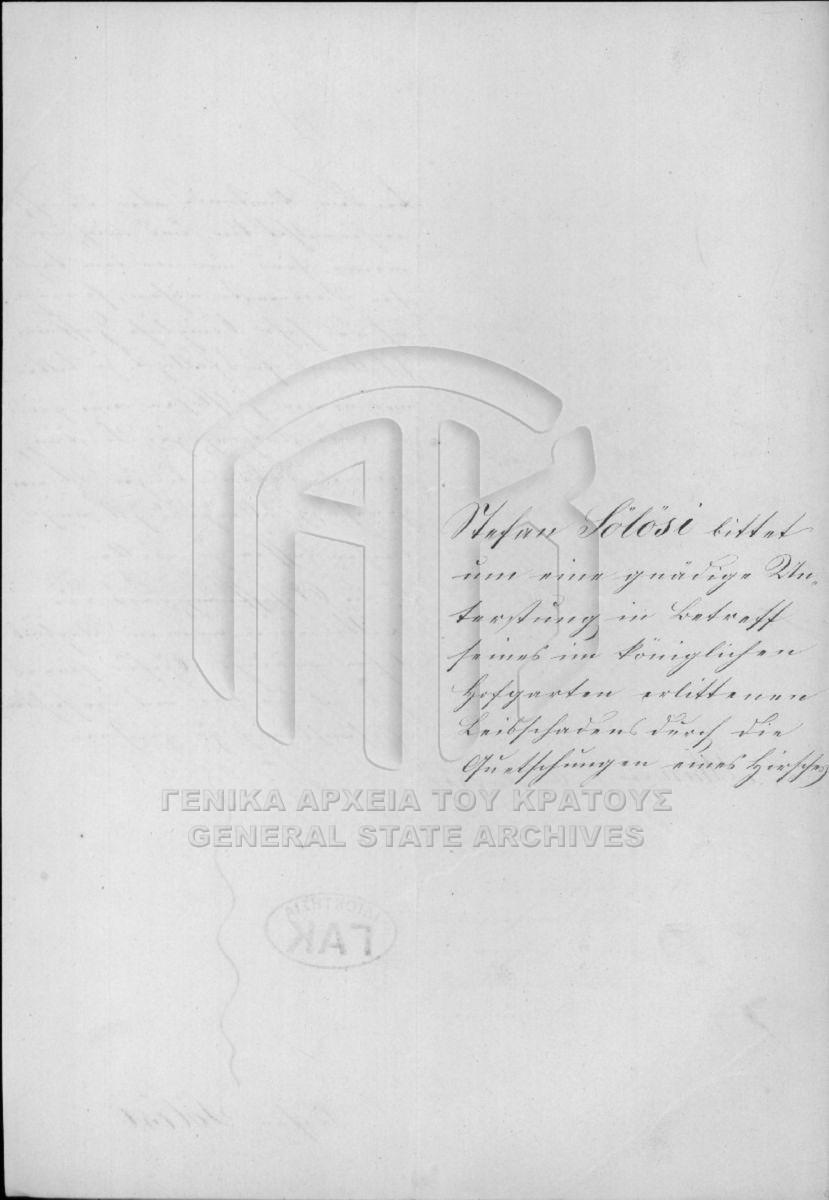 Stefan Sölösi bittet
um eine gnädige Un-
terstüung in Betreff
seines im königlichen
Hofgarten erlittenen
Leibschadens durch die
Quetschungen eines Hirsches
ΓΕΝΙΚΑ ΑΡΧΕΙΑ ΤΟΥ ΚΡΑΤΟΥΣ
GENERAL STATE ARCHIVES
ΓΑΚ